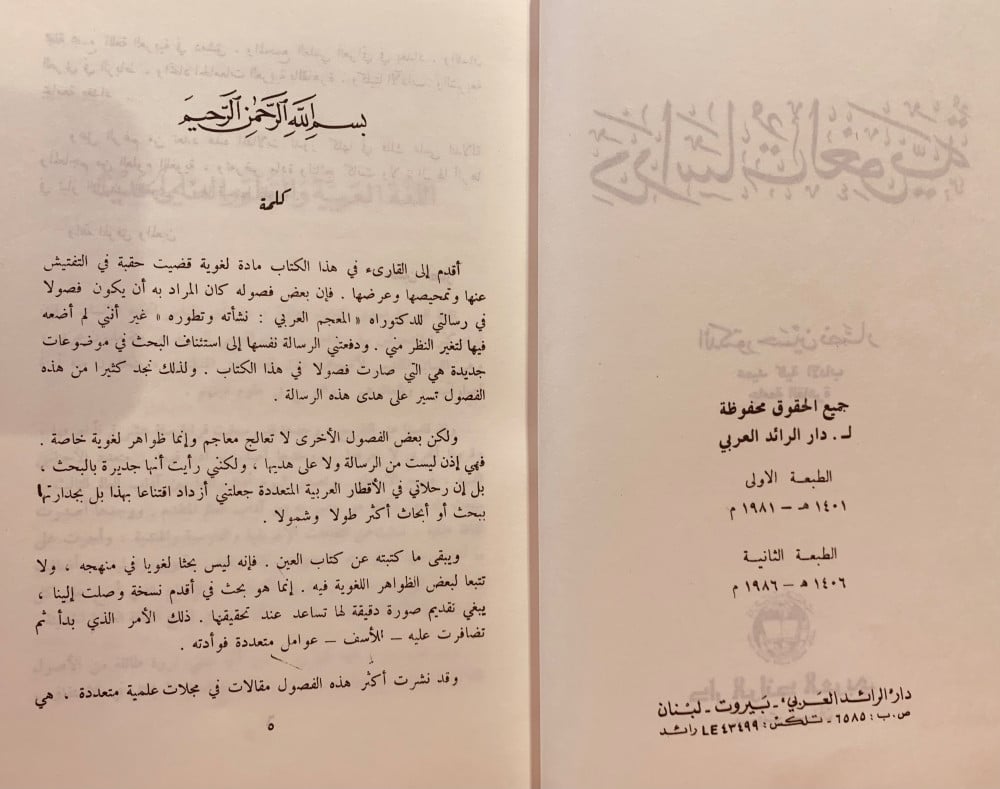 جميع الحقوق محفوظة
لـ . دار الرائد العربي
الطبعة الاولى
١٤٠١ هـ – ١٩٨١ م
الطبعة الثانية
١٤٠٦ هـ – ١٩٨٦ م
دار الرائد العربي - بيروت - لبنان
ص.ب : ٦٥٨٥ - تلكس : LE ٤٣٤٩٩ رائد
بسم الله الرحمن الرحيم
كلمة
أقدم إلى القارىء في هذا الكتاب مادة لغوية قضيت حقبة في التفتيش
عنها وتمحيصها وعرضها . فإن بعض فصوله كان المراد به أن يكون فصولا
في رسالتي للدكتوراه « المعجم العربي : نشأته وتطوره » غير أنني لم أضعه
فيها لتغير النظر مني . ودفعتني الرسالة نفسها إلى استئناف البحث في موضوعات
جديدة هي التي صارت فصولا في هذا الكتاب . ولذلك نجد كثيرا من هذه
الفصول تسير على هدى هذه الرسالة .
ولكن بعض الفصول الأخرى لا تعالج معاجم وإنما ظواهر لغوية خاصة .
فهي إذن ليست من الرسالة ولا على هديها ، ولكنني رأيت أنها جديرة بالبحث ،
بل إن رحلاتي في الأقطار العربية المتعددة جعلتني أزداد اقتناعا بهذا بل بجدارتها
ببحث أو أبحاث أكثر طولا وشمولا .
ويبقى ما كتبته عن كتاب العين . فإنه ليس بحثا لغويا في منهجه ، ولا
تتبعا لبعض الظواهر اللغوية فيه . إنما هو بحث في أقدم نسخة وصلت إلينا ،
يبغي تقديم صورة دقيقة لها تساعد عند تحقيقها . ذلك الأمر الذي بدأ ثم
تضافرت عليه – للأسف – عوامل متعددة فوأدته .
وقد نشرت أكثر هذه الفصول مقالات في مجلات علمية متعددة ، هي
٥